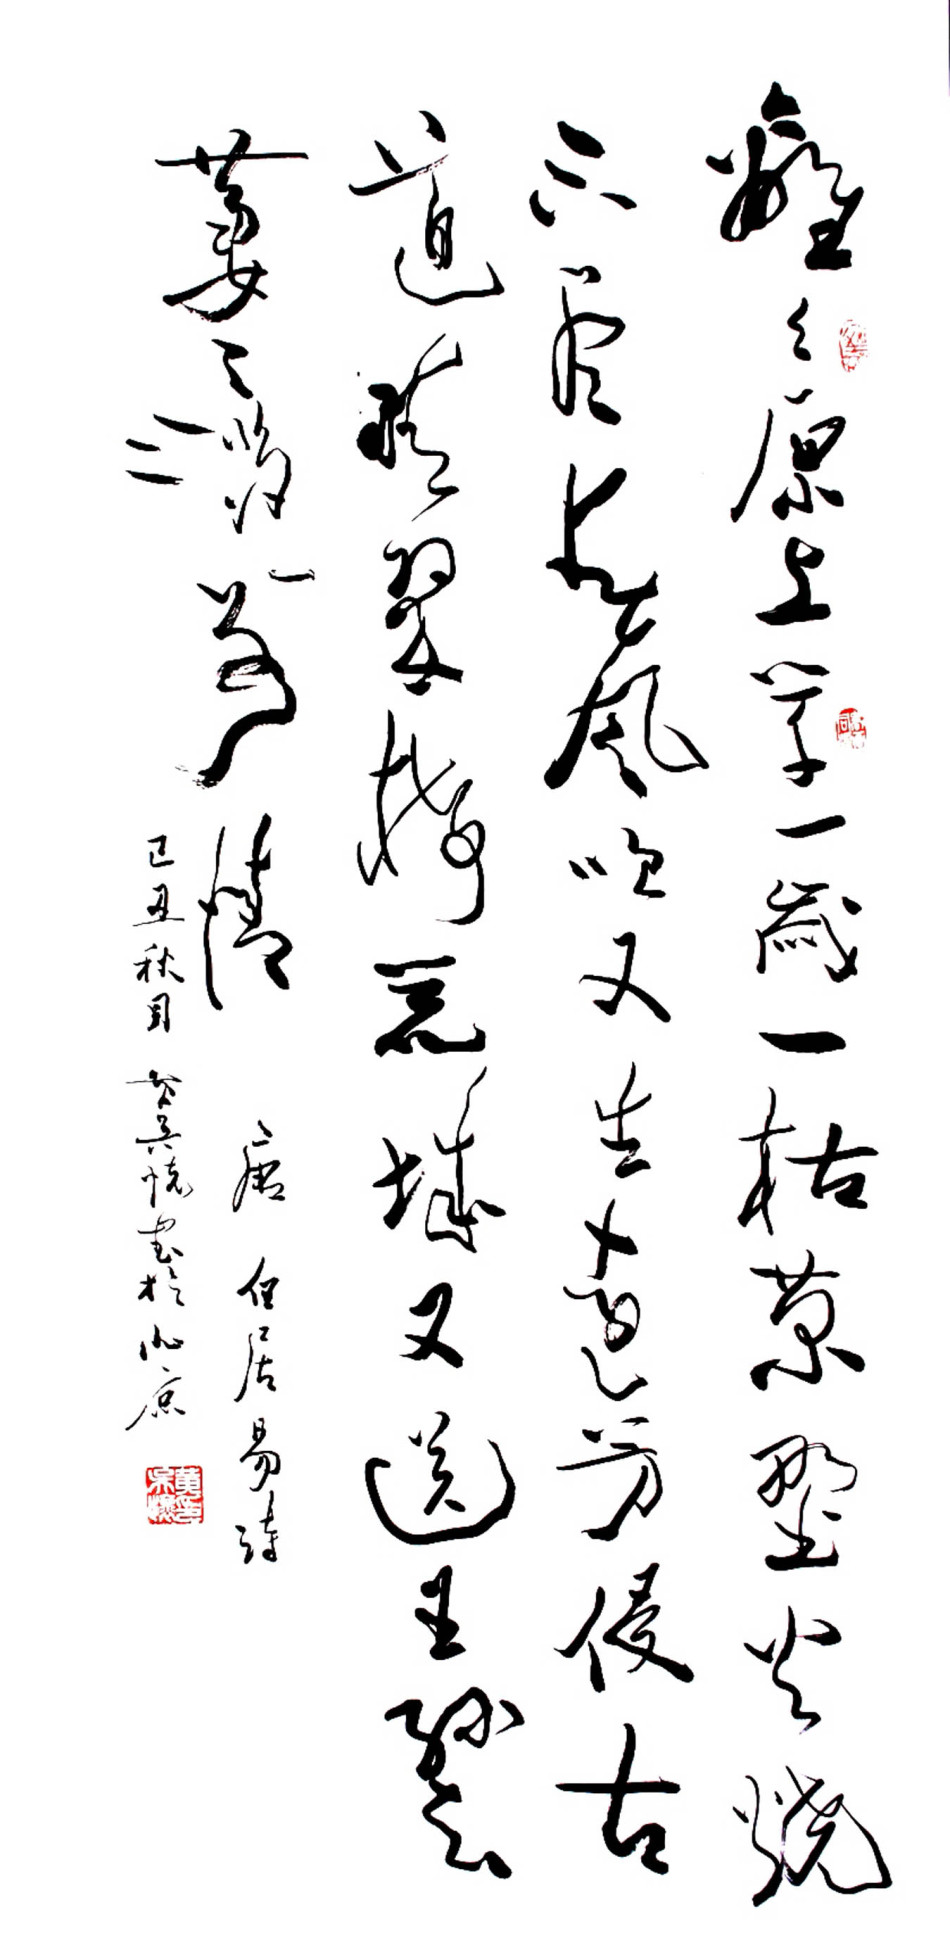 離々原上草一歲一枯榮野火燒
不盡春風吹又生遠芳侵古
道晴翠接荒城又送王孫去
萋々滿別情 唐 白居易詩
己丑秋月 黃吳懷書於北京